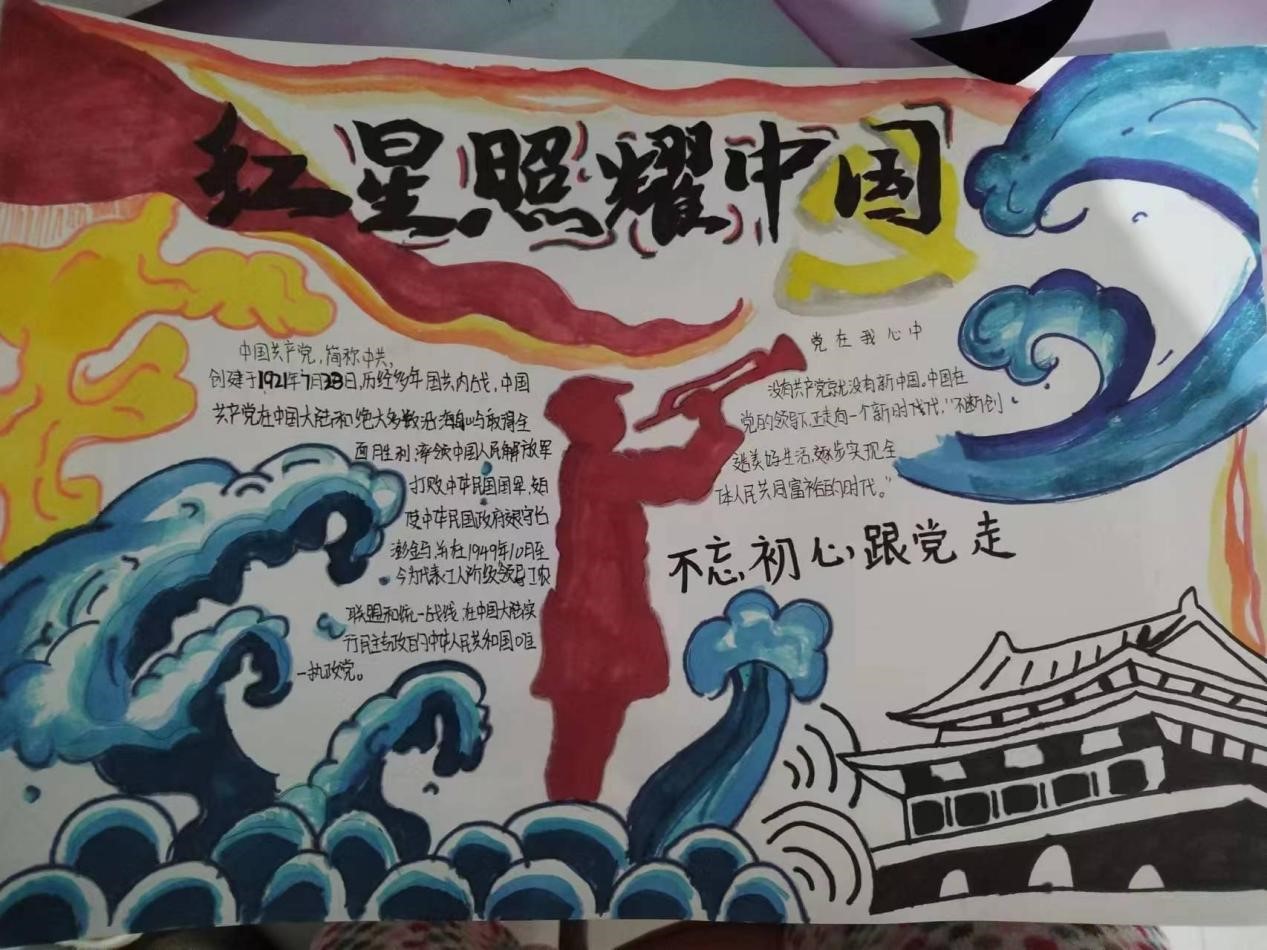 红星照耀中国
中国共产党,简称中共,
创建于1921年7月23日,历经多年国共内战,中国
共产党在中国大陆和绝大多数沿海岛屿取得全
面胜利,率领中国人民解放军
打败中华民国国军,迫
使中华民国政府退守台
澎金马,并在1949年10月至
今为代表工人阶级领导工农
联盟和统一战线,在中国大陆实
行民主专政的中华人民共和国唯
一执政党。
党在我心中
没有共产党就没有新中国。中国在
党的领导下,正走向一个新时代,"不断创
造美好生活,逐步实现全
体人民共同富裕的时代。"
不忘初心跟党走